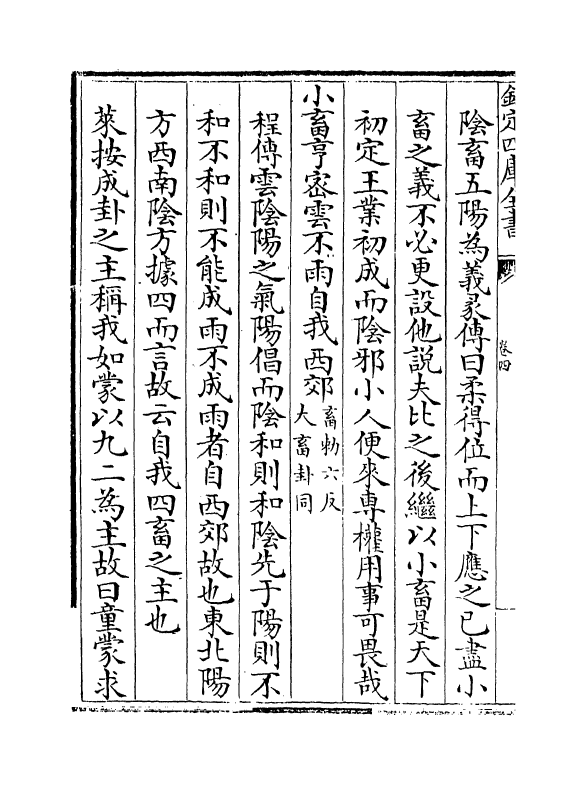 欽定四庫全書
卷四
陰畜五陽為義彖傳曰柔得位而上下應之已盡小
畜之義不必更設他説夫比之後繼以小畜是天下
初定王業初成而陰邪小人便來專權用事可畏哉
小畜亨宻雲不雨自我西郊畜勑六反大畜卦同
程傳雲陰陽之氣陽倡而陰和則和陰先于陽則不
和不和則不能成雨不成雨者自西郊故也東北陽
方西南陰方據四而言故云自我四畜之主也
萊按成卦之主稱我如蒙以九二為主故曰童蒙求